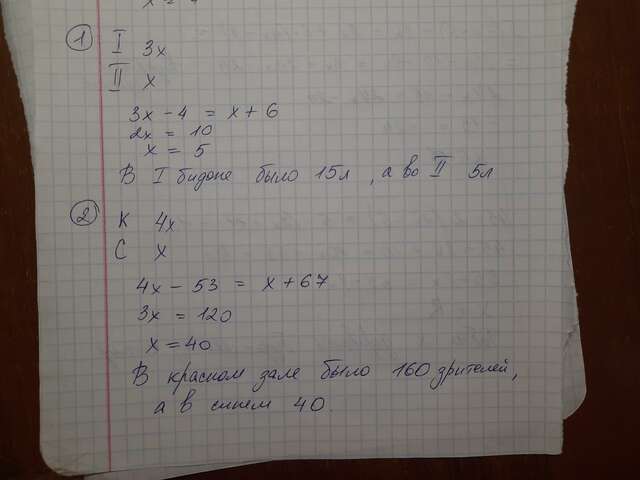 ① I 3x
II x
3x - 4 = x + 6
2x = 10
x = 5
В I бидоне было 15л, а во II 5л
② К 4x
С x
4x - 53 = x + 67
3x = 120
x = 40
В красном зале было 160 зрителей,
а в синем 40.